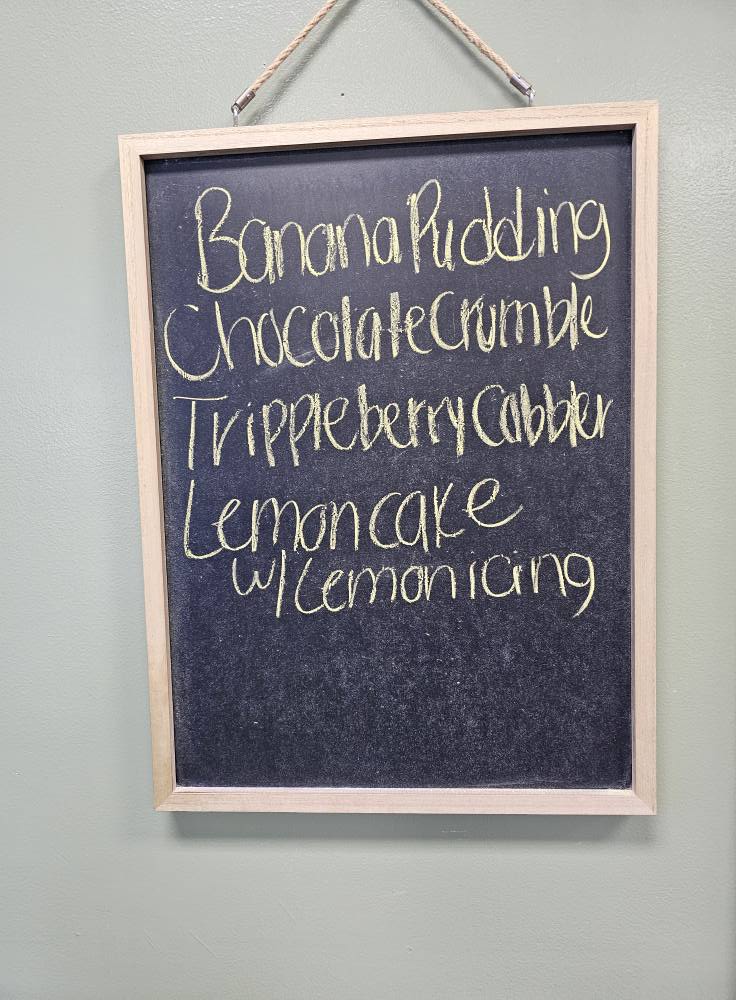 Banana Pudding
Chocolate Crumble
Trippleberry Cobbler
Lemon cake
w/ Lemon icing